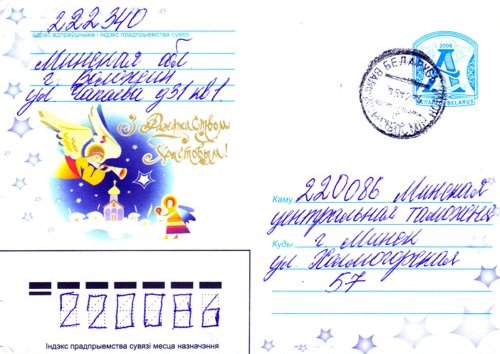 222340
адрас адпраўшчыка і індэкс прадпрыемства сувязі
Минская обл
г. Воложин
ул Чапаева д 31 кв 1
З Раджаством
Хрыстовым!
2006
А
БЕЛАРУСЬ BELARUS
БЕЛАРУСЬ
Каму 220086 Минская
центральная таможня
Куды г Минск
ул. Холмогорская
57
220086
Індэкс прадпрыемства сувязі месца назначэння